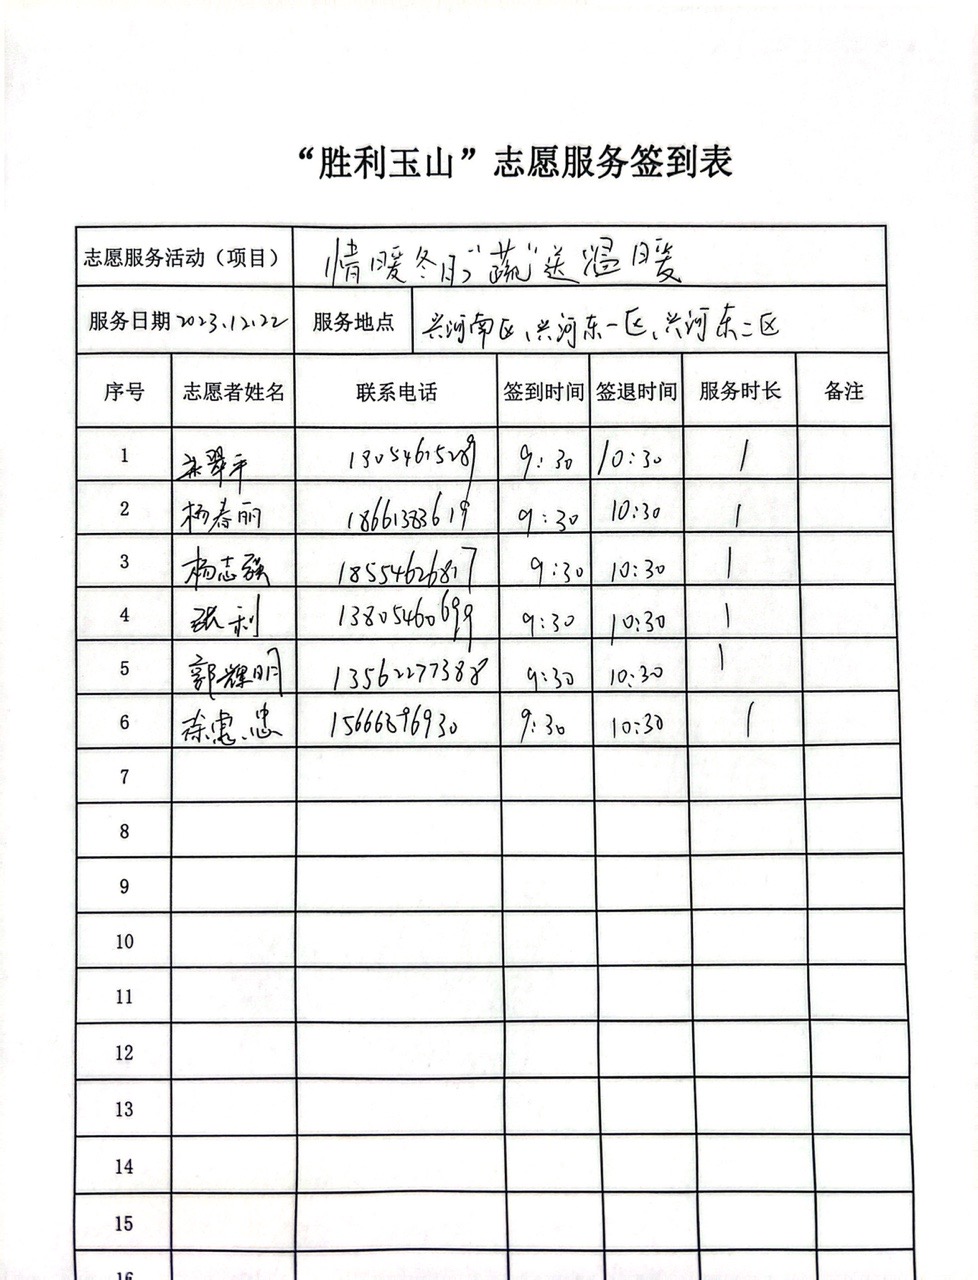 “胜利玉山”志愿服务签到表
志愿服务活动（项目） 情暖冬日，“蔬”送温暖
服务日期 2023.12.22 服务地点 兴河南区、兴河东一区、兴河东二区
序号 志愿者姓名 联系电话 签到时间 签退时间 服务时长 备注
1 翠平 13054615289 9:30 10:30 1
2 杨春丽 18661383619 9:30 10:30 1
3 杨志强 18554626817 9:30 10:30 1
4 张利 13805460699 9:30 10:30 1
5 郭辉明 13562277388 9:30 10:30 1
6 徐惠忠 15666896930 9:30 10:30 1
7
8
9
10
11
12
13
14
15
16